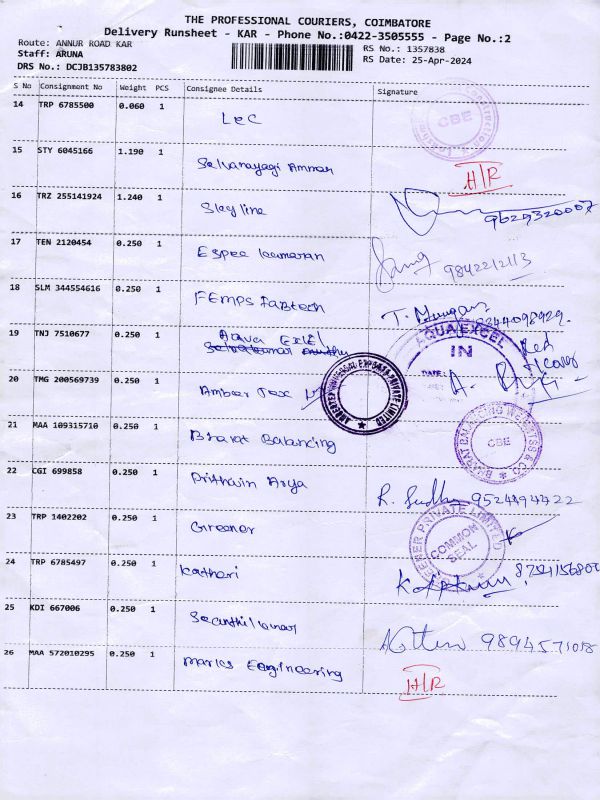 THE PROFESSIONAL COURIERS, COIMBATORE
Delivery Runsheet - KAR - Phone No.:0422-3505555 - Page No.:2
Route: ANNUR ROAD KAR
RS No.: 1357838
Staff: ARUNA
RS Date: 25-Apr-2024
DRS No.: DCJB135783802
S No Consignment No Weight PCS Consignee Details Signature
14 TRP 6785500 0.060 1 LeC CBE
15 STY 6045166 1.190 1 Selvanayagi Ammar H/R
16 TRZ 255141924 1.240 1 Skyline 9629320007
17 TEN 2120454 0.250 1 Espee kumaran 9842212113
18 SLM 344554616 0.250 1 FEMPS FABtech T. Murugan
19 TNJ 7510677 0.250 1 Aqua Exel AQUA EXCEL IN DATE:
20 TMG 200569739 0.250 1 Amber Tex
21 MAA 109315710 0.250 1 Bharat Balancing BHARAT BALANCING WEIGHTSS & CO CBE
22 CGI 699858 0.250 1 Prithain Arya R. Sudha 9524894422
23 TRP 1402202 0.250 1 Greener GREENER PRIVATE LIMITED COMMON SEAL
24 TRP 6785497 0.250 1 kathari
25 KDI 667006 0.250 1 Senthilkumar 9894571018
26 MAA 572010295 0.250 1 Marks Engineering H/R